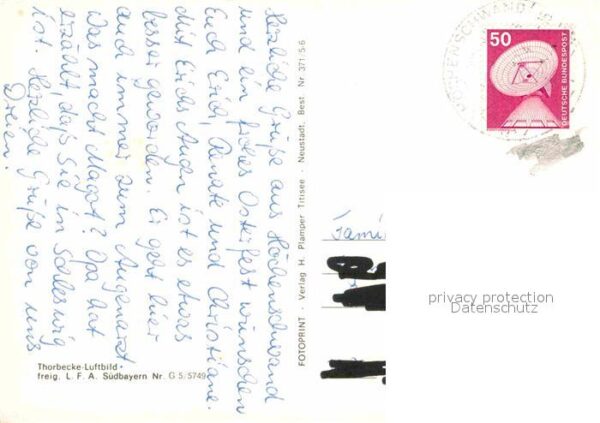 Herzliche Grüße aus Höchenschwand
und ein frohes Osterfest wünschen
Euch Erich, Renate und Christiane.
Mit Erichs Augen ist es etwas
besser geworden. Er geht hier
auch immer zum Augenarzt
Was macht Magot? Opa hat
erzählt daß Sie in Schleswig
ist. Herzliche Grüße von uns
Dreien.
FOTOPRINT · Verlag H. Plamper Titisee - Neustadt, Best. Nr. 371 5.6
Thorbecke-Luftbild ·
freig. L. F. A. Südbayern Nr. G 5/5749
HÖCHENSCHWAND
50
DEUTSCHE BUNDESPOST
Fami
privacy protection
Datenschutz